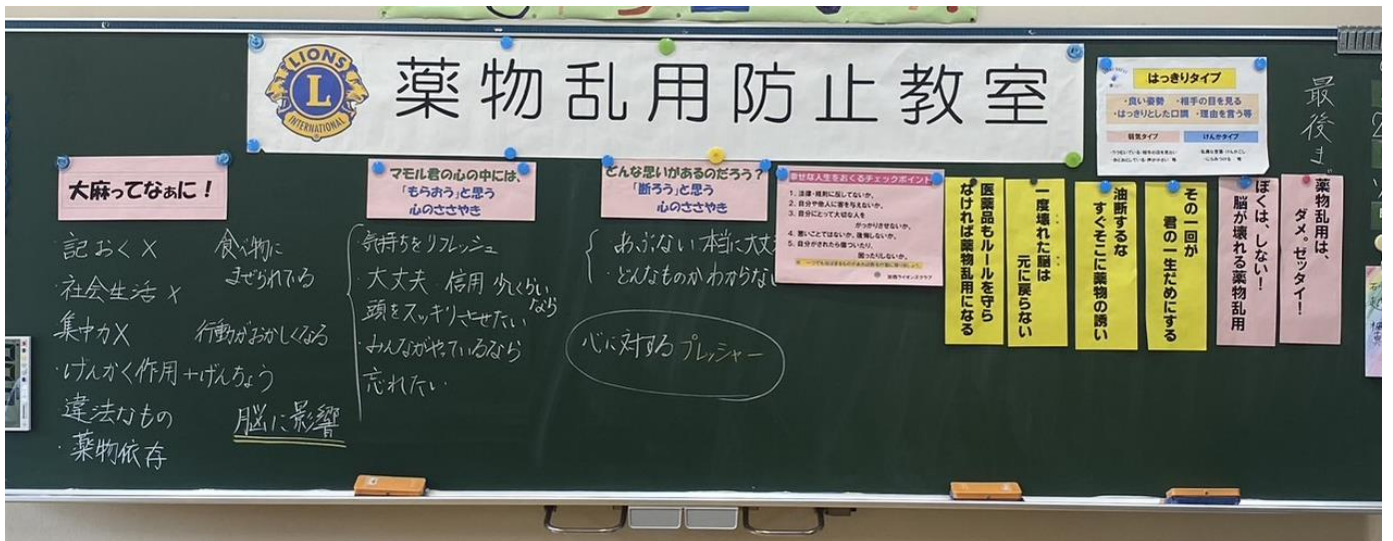 LIONS
L
INTERNATIONAL
薬物乱用防止教室
はっきりタイプ
・良い姿勢 ・相手の目を見る
・はっきりとした口調 ・理由を言う等
弱気タイプ
けんかタイプ
最後ま
大麻ってなぁに！
・記おく×
・社会生活×
集中力×
・げんかく作用+げんちょう
違法なもの
・薬物依存
食べ物に
まぜられている
行動がおかしくなる
脳に影響
マモル君の心の中には、
「もらおう」と思う
心のささやき
・気持ちをリフレッシュ
・大丈夫 信用 少しくらい
なら
頭をスッキリさせたい
・みんながやっているなら
忘れたい
どんな思いがあるのだろう？
「断ろう」と思う
心のささやき
・あぶない 本当に大丈
・どんなものかわからな
心に対するプレッシャー
幸せな人生をおくるチェックポイント
1. 法律・規則に反してないか。
2. 自分や他人に害を与えないか。
3. 自分にとって大切な人を
がっかりさせないか。
4. 悪いことではないか。後悔しないか。
5. 自分がされたら傷ついたり、
困ったりしないか。
医薬品もルールを守ら
なければ薬物乱用になる
一度壊れた脳は
元に戻らない
油断するな
すぐそこに薬物の誘い
その一回が
君の一生だめにする
ぼくは、しない！
脳が壊れる薬物乱用
薬物乱用は、
ダメ。ゼッタイ！